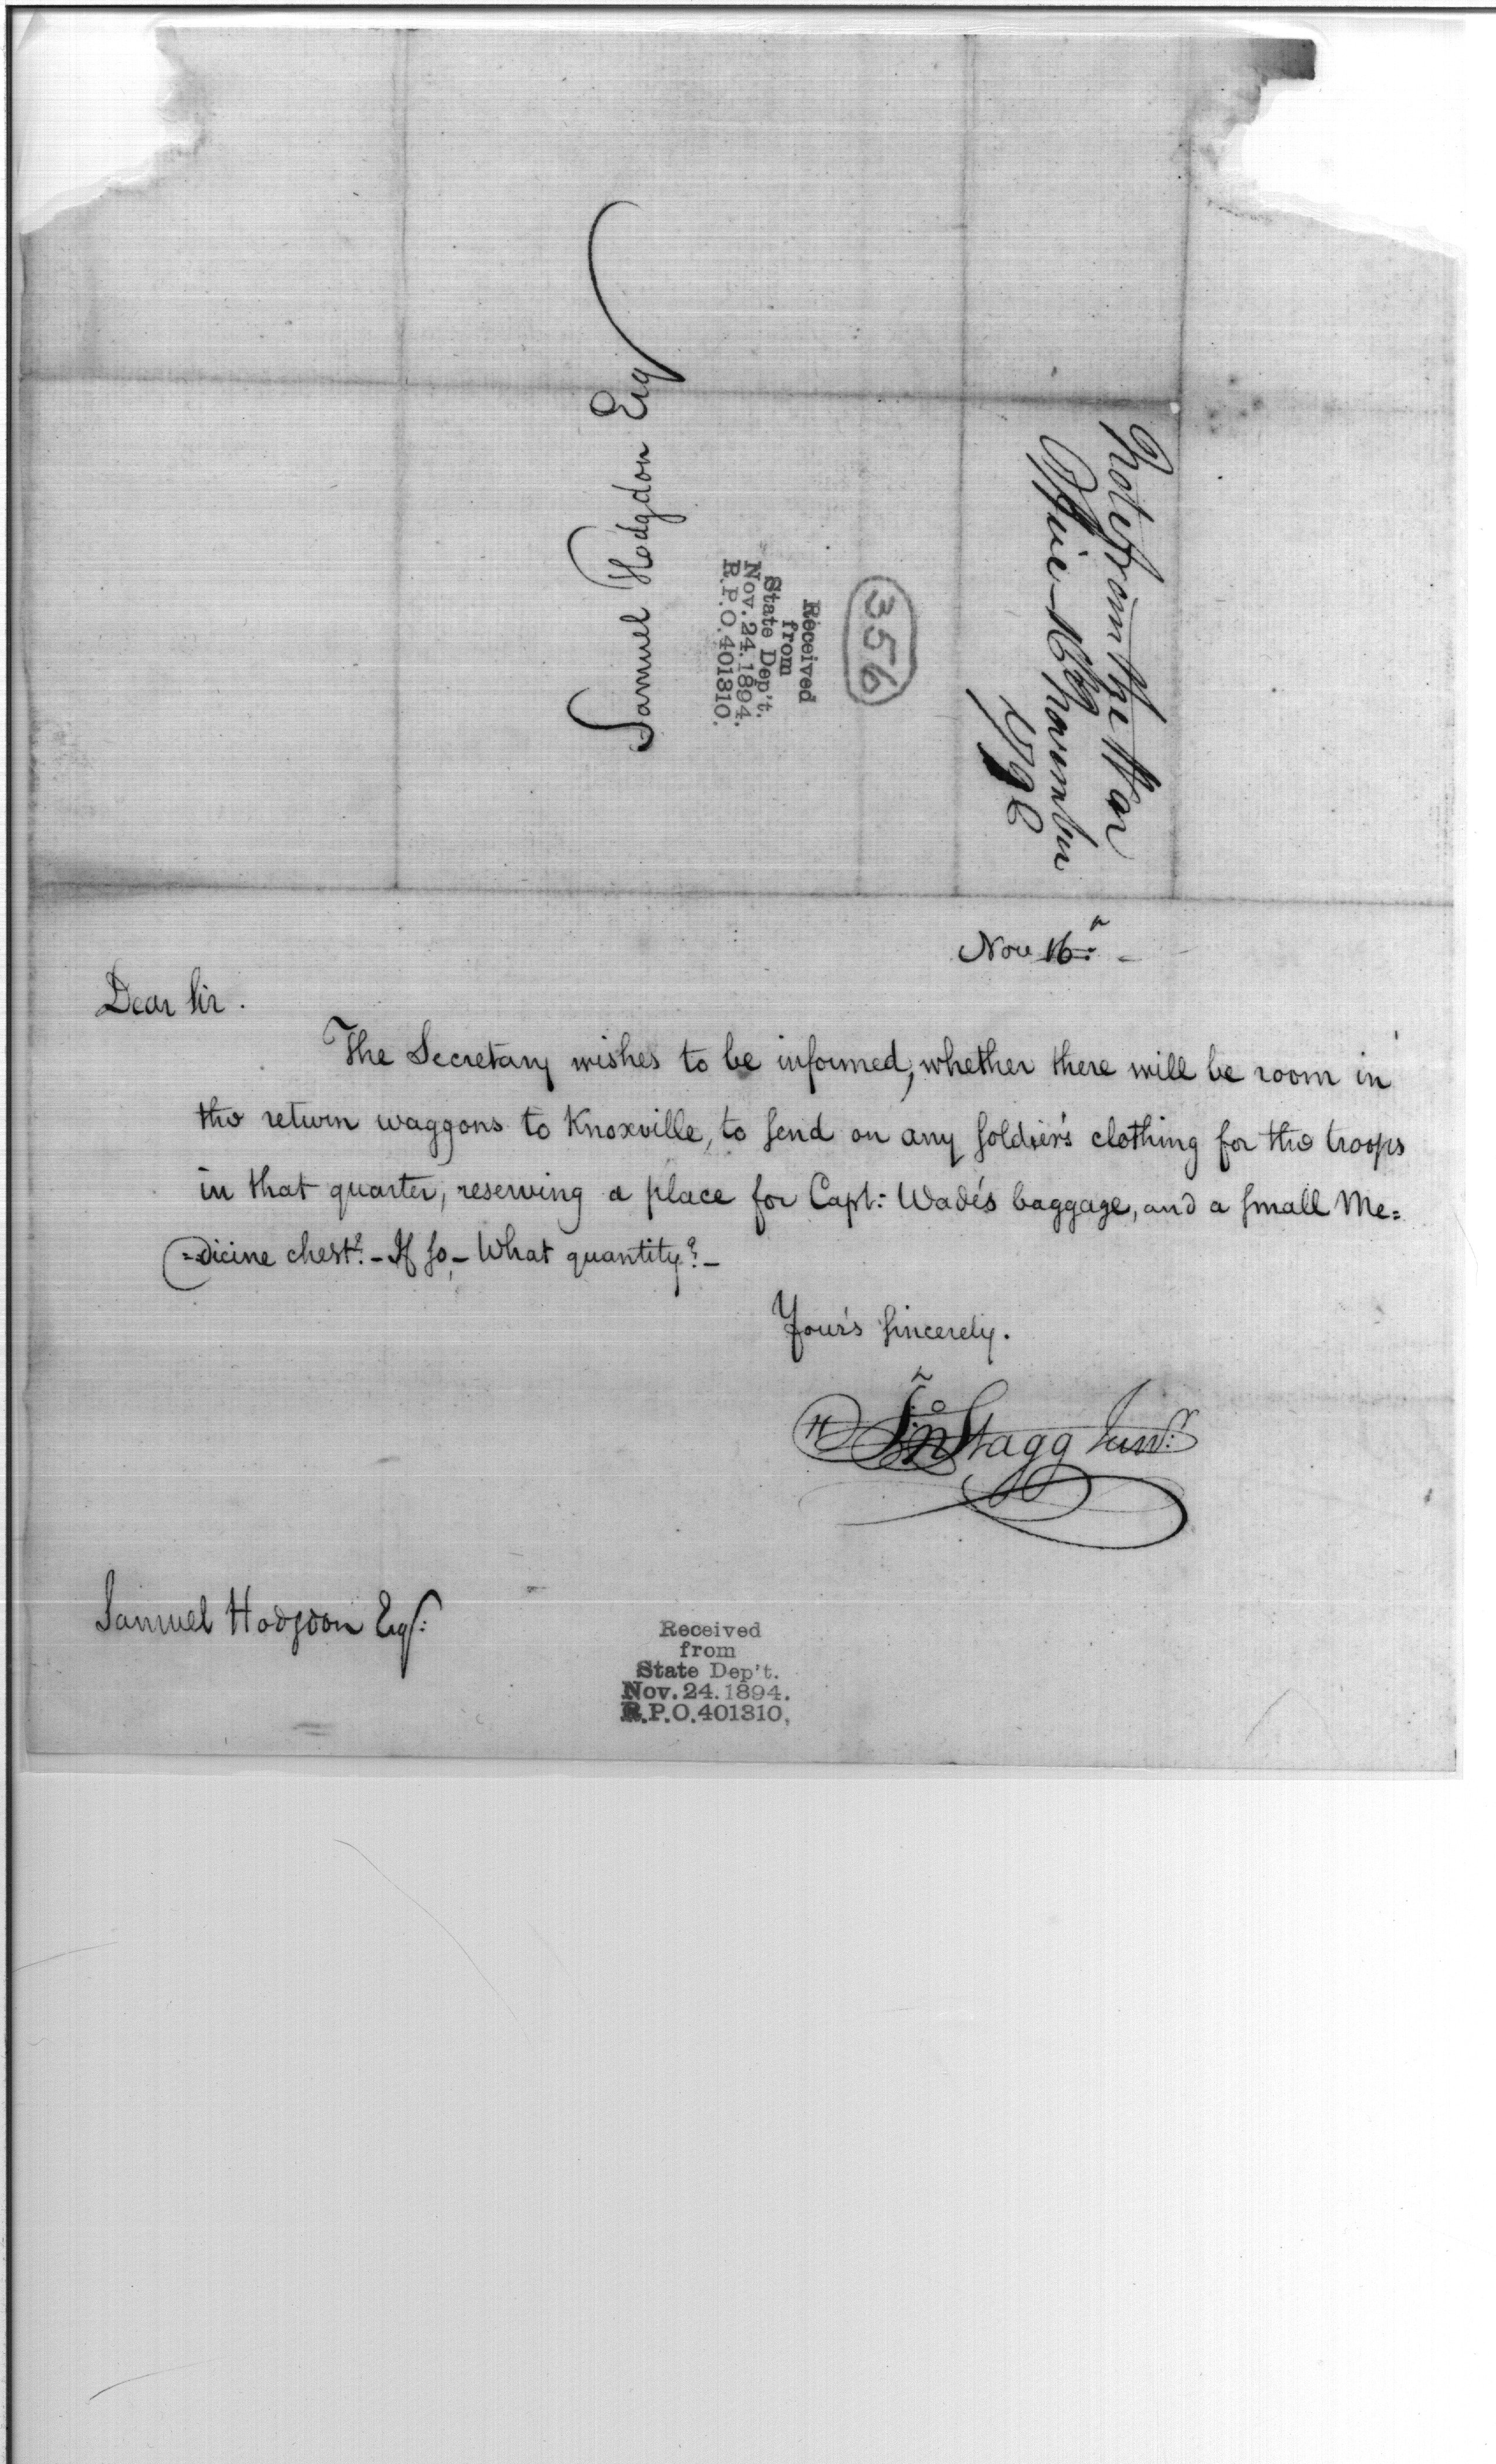 Samuel Hodgdon Esq
Received
from
State Dep't.
Nov. 24. 1894.
R.P.O. 401310.
356
Note from the War
Office 16 November
179
Nov 16:
Dear Sir.
The Secretary wishes to be informed, whether there will be room in
the return waggons to Knoxville, to send on any soldier's clothing for the troops
in that quarter, reserving a place for Capt: Wade's baggage, and a small Me=
=dicine chest? - If so, - What quantity? -
Your's sincerely.
Jno Stagg Junr:
Samuel Hodgdon Esqr:
Received
from
State Dep't.
Nov. 24. 1894.
R.P.O. 401310.